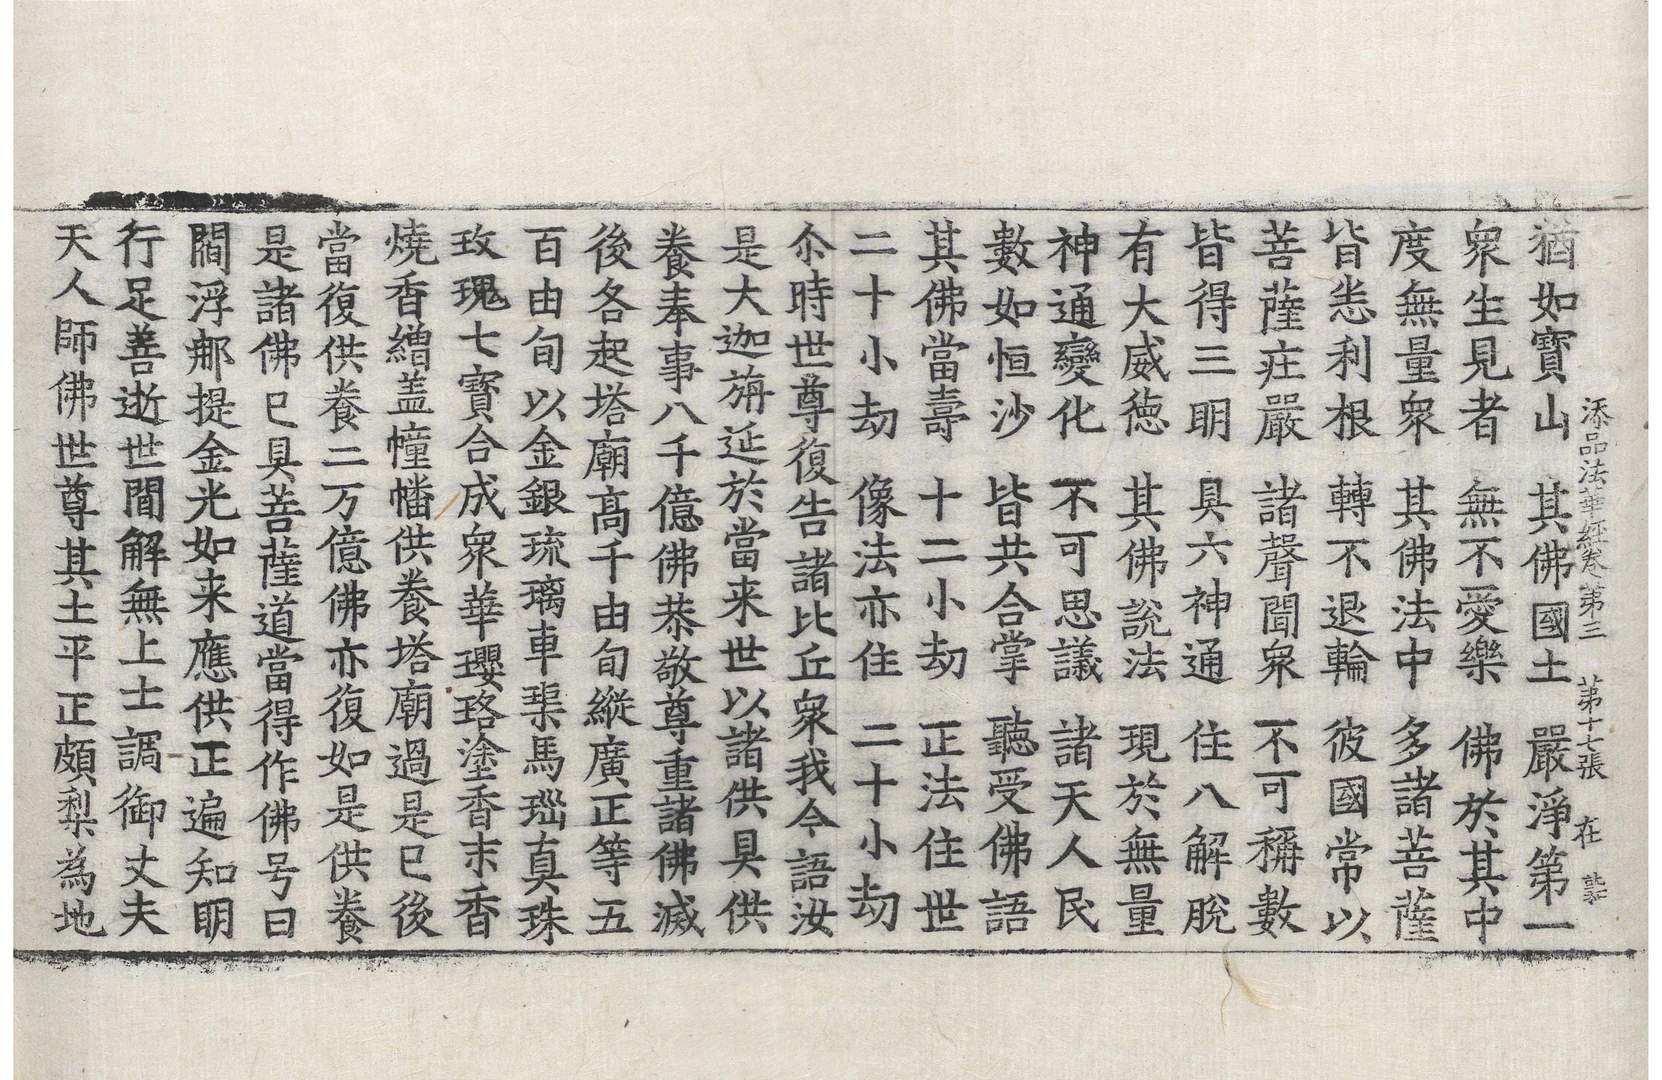 添品法華經卷第三　第十七張　在
猶如寶山　其佛國土　嚴淨第一
衆生見者　無不愛樂　佛於其中
度無量衆　其佛法中　多諸菩薩
皆悉利根　轉不退輪　彼國常以
菩薩庄嚴　諸聲聞衆　不可稱數
皆得三明　具六神通　住八解脫
有大威德　其佛說法　現於無量
神通變化　不可思議　諸天人民
數如恒沙　皆共合掌　聽受佛語
其佛當壽　十二小劫　正法住世
二十小劫　像法亦住　二十小劫
尒時世尊復告諸比丘衆我今語汝
是大迦旃延於當来世以諸供具供
養奉事八千億佛恭敬尊重諸佛滅
後各起塔廟高千由旬縱廣正等五
百由旬以金銀琉璃車𤦲馬瑙真珠
玫瑰七寶合成衆華瓔珞塗香末香
燒香繒盖幢幡供養塔廟過是已後
當復供養二万億佛亦復如是供養
是諸佛已具菩薩道當得作佛号曰
閻浮那提金光如来應供正遍知明
行足善逝世間解無上士調御丈夫
天人師佛世尊其土平正頗梨為地